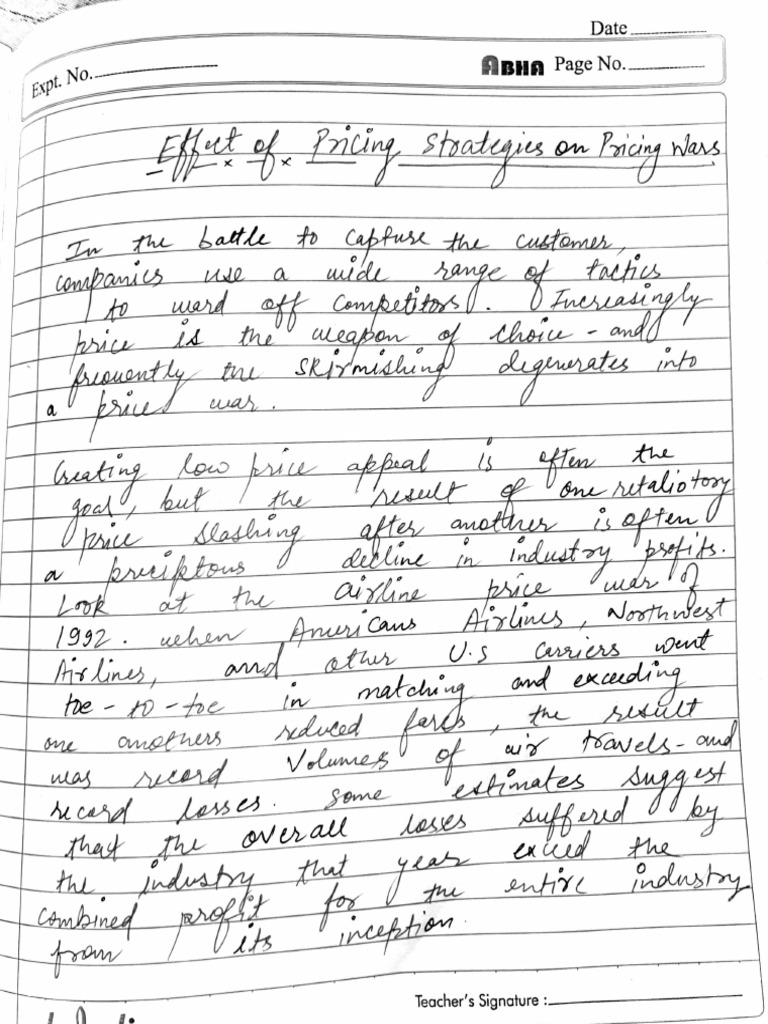 Date
Expt. No.
ABHA Page No.
Effect of Pricing Strategies on Pricing Wars
In the battle to capture the customer,
companies use a wide range of tactics
to ward off competitors. Increasingly
price is the weapon of choice - and
frequently the skirmishing degenerates into
a price war.
Creating low price appeal is often the
goal, but the result of one retaliotory
price slashing after another is often
a preciptous decline in industry profits.
Look at the airline price war of
1992. when Americans Airlines, Northwest
Airlines, and other U.S carriers went
toe-to-toe in matching and exceeding
one anothers reduced fares, the result
was record volumes of air travels - and
record losses. Some estimates suggest
that the overall loses suffered by
the industry that year exceed the
combined profit for the entire industry
from its inception.
Teacher's Signature :